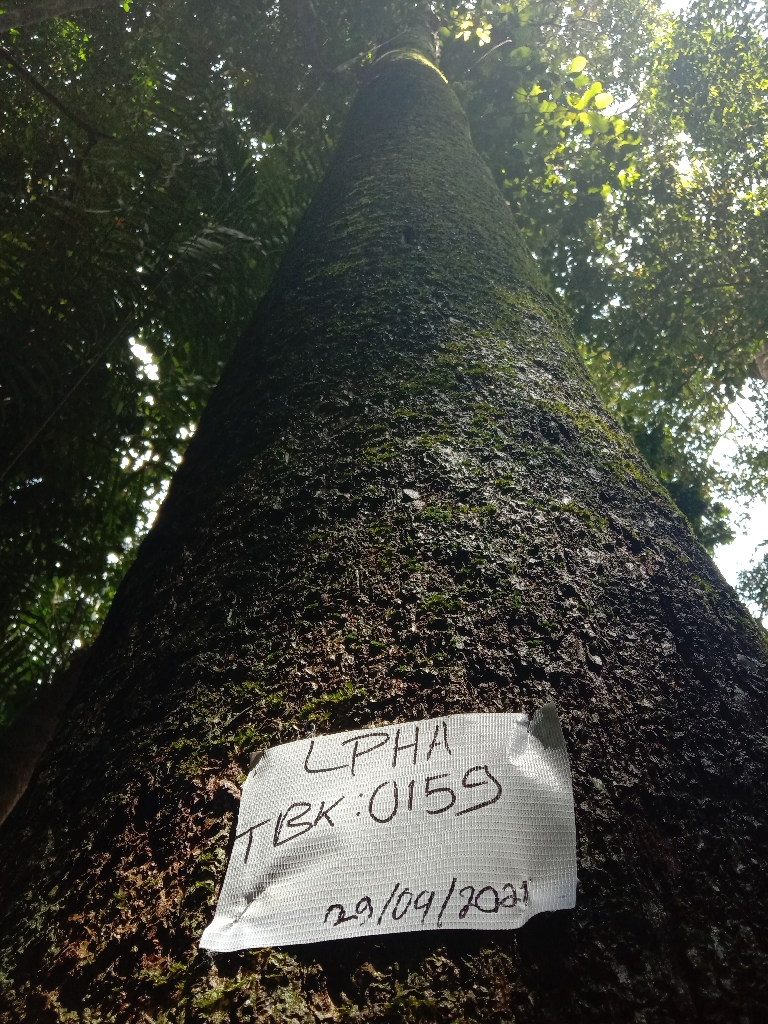 LPHA
TBK:0159
29/09/2021